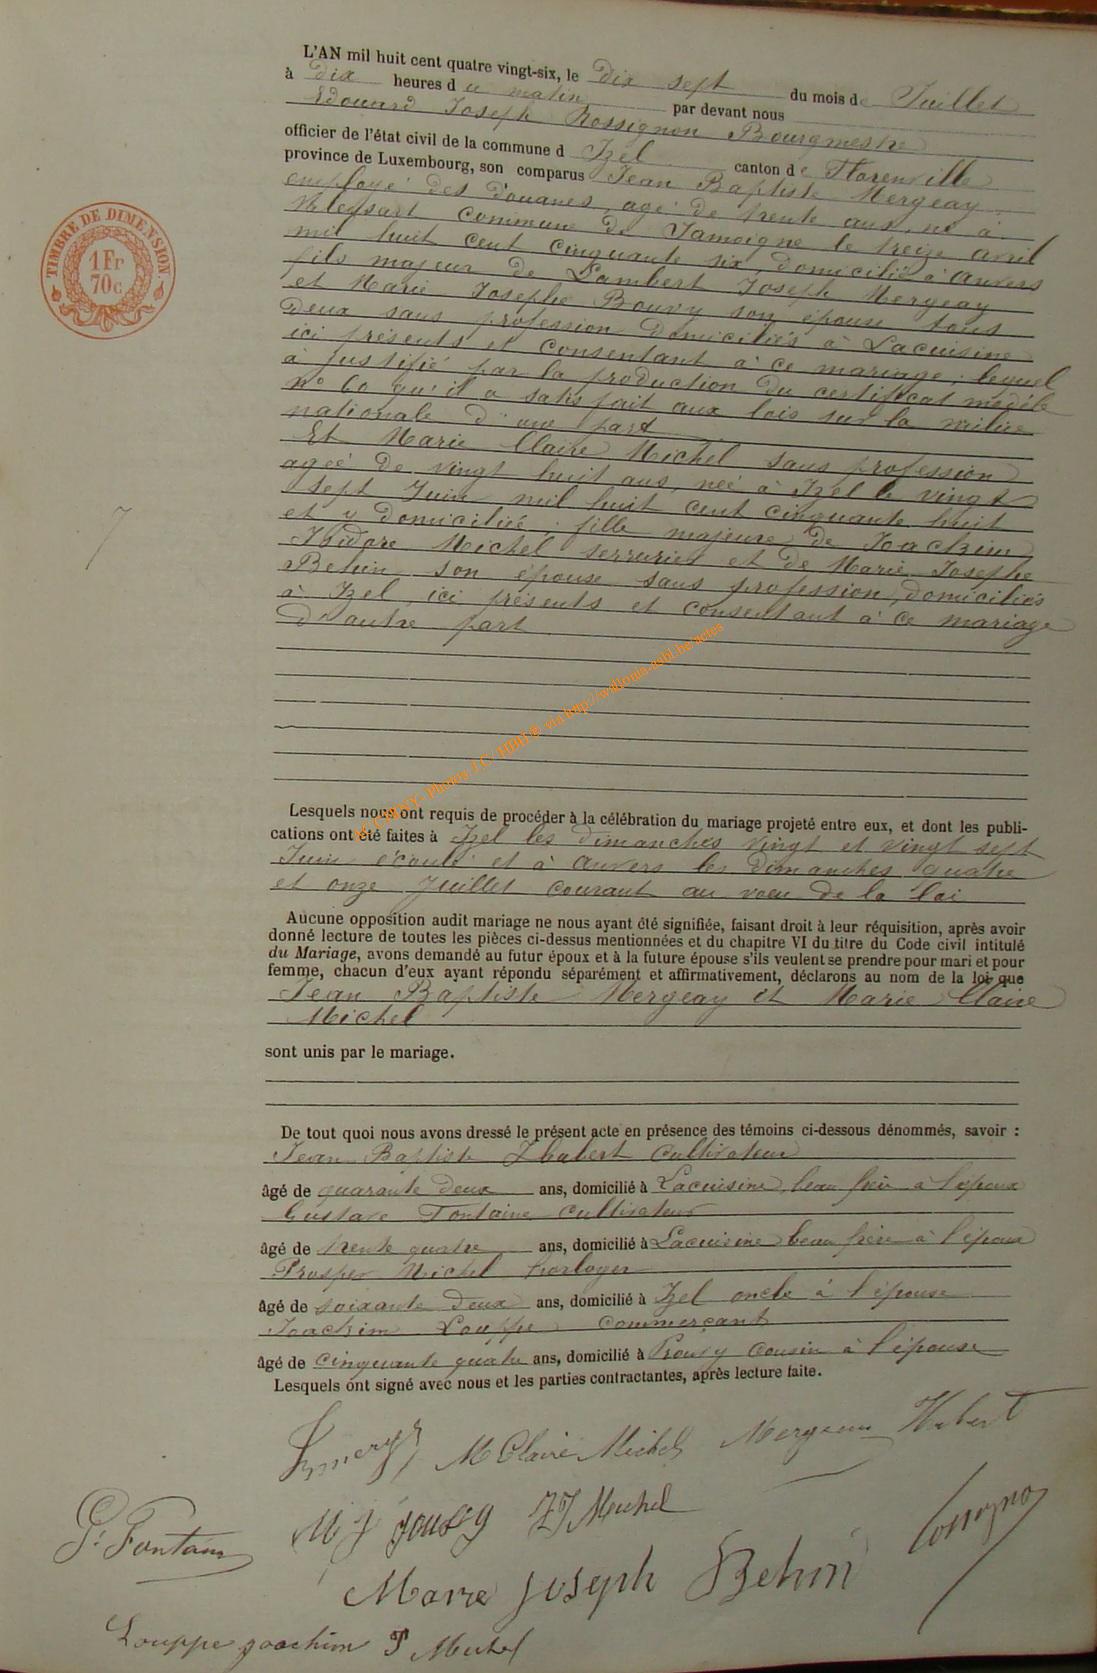 L'AN mil huit cent quatre vingt-six, le Dix sept du mois de Juillet
à Dix heures du matin par devant nous
Edouard Joseph Rossignon Bourgmestre
officier de l'état civil de la commune d Izel canton de Florenville
province de Luxembourg, son comparus Jean Baptiste Mergeay
employé des douanes, agé de trente ans, né à
commune de Jamoigne le treize avril
mil huit cent cinquante six, domicilié à Anvers
fils majeur de Lambert Joseph Mergeay
et Marie Josephe Bouvy son épouse tous
deux sans profession domiciliés à Lacuisine
ici présents et consentant à ce mariage, lequel
à justifié par la production du certificat modèle
n° 60 qu'il a satisfait aux lois sur la milice
nationale d'une part
Et Marie Claire Michel sans profession
agée de vingt huit ans, née à Izel le vingt
sept Juin mil huit cent cinquante huit
et y domiciliée, fille majeure de Joachim
Isidore Michel serrurier et de Marie Josephe
Behin son épouse sans profession, domiciliés
à Izel, ici présents et consentant à ce mariage
D'autre part
ACCHNY- Photos J.C. HDH © via http://wallonia-asbl.be/actes
TIMBRE DE DIMENSION
1 Fr
70c
7
Lesquels nous ont requis de procéder à la célébration du mariage projeté entre eux, et dont les publi-
cations ont été faites à Izel les dimanches vingt et vingt sept
Juin écoulé et à Anvers les dimanches quatre
et onze Juillet courant au voeu de la loi
Aucune opposition audit mariage ne nous ayant été signifiée, faisant droit à leur réquisition, après avoir
donné lecture de toutes les pièces ci-dessus mentionnées et du chapitre VI du titre du Code civil intitulé
du Mariage, avons demandé au futur époux et à la future épouse s'ils veulent se prendre pour mari et pour
femme, chacun d'eux ayant répondu séparément et affirmativement, déclarons au nom de la loi que
Jean Baptiste Mergeay et Marie Claire
Michel
sont unis par le mariage.
De tout quoi nous avons dressé le présent acte en présence des témoins ci-dessous dénommés, savoir :
Jean Baptiste Hubert Cultivateur
âgé de quarante deux ans, domicilié à Lacuisine, beau frère à l'époux
Gustave Fontaine cultivateur
âgé de trente quatre ans, domicilié à Lacuisine beau frère à l'époux
Prosper Michel horloger
âgé de soixante deux ans, domicilié à Izel oncle à l'épouse
Joachim Louppe commerçant
âgé de cinquante quatre ans, domicilié à Prouvy Cousin à l'épouse
Lesquels ont signé avec nous et les parties contractantes, après lecture faite.
M Claire Michel Mergeay Hubert
G. Fontaine M J Bouvy J I Michel Rossignon
Marie Joseph Behin
Louppe joachim P Michel